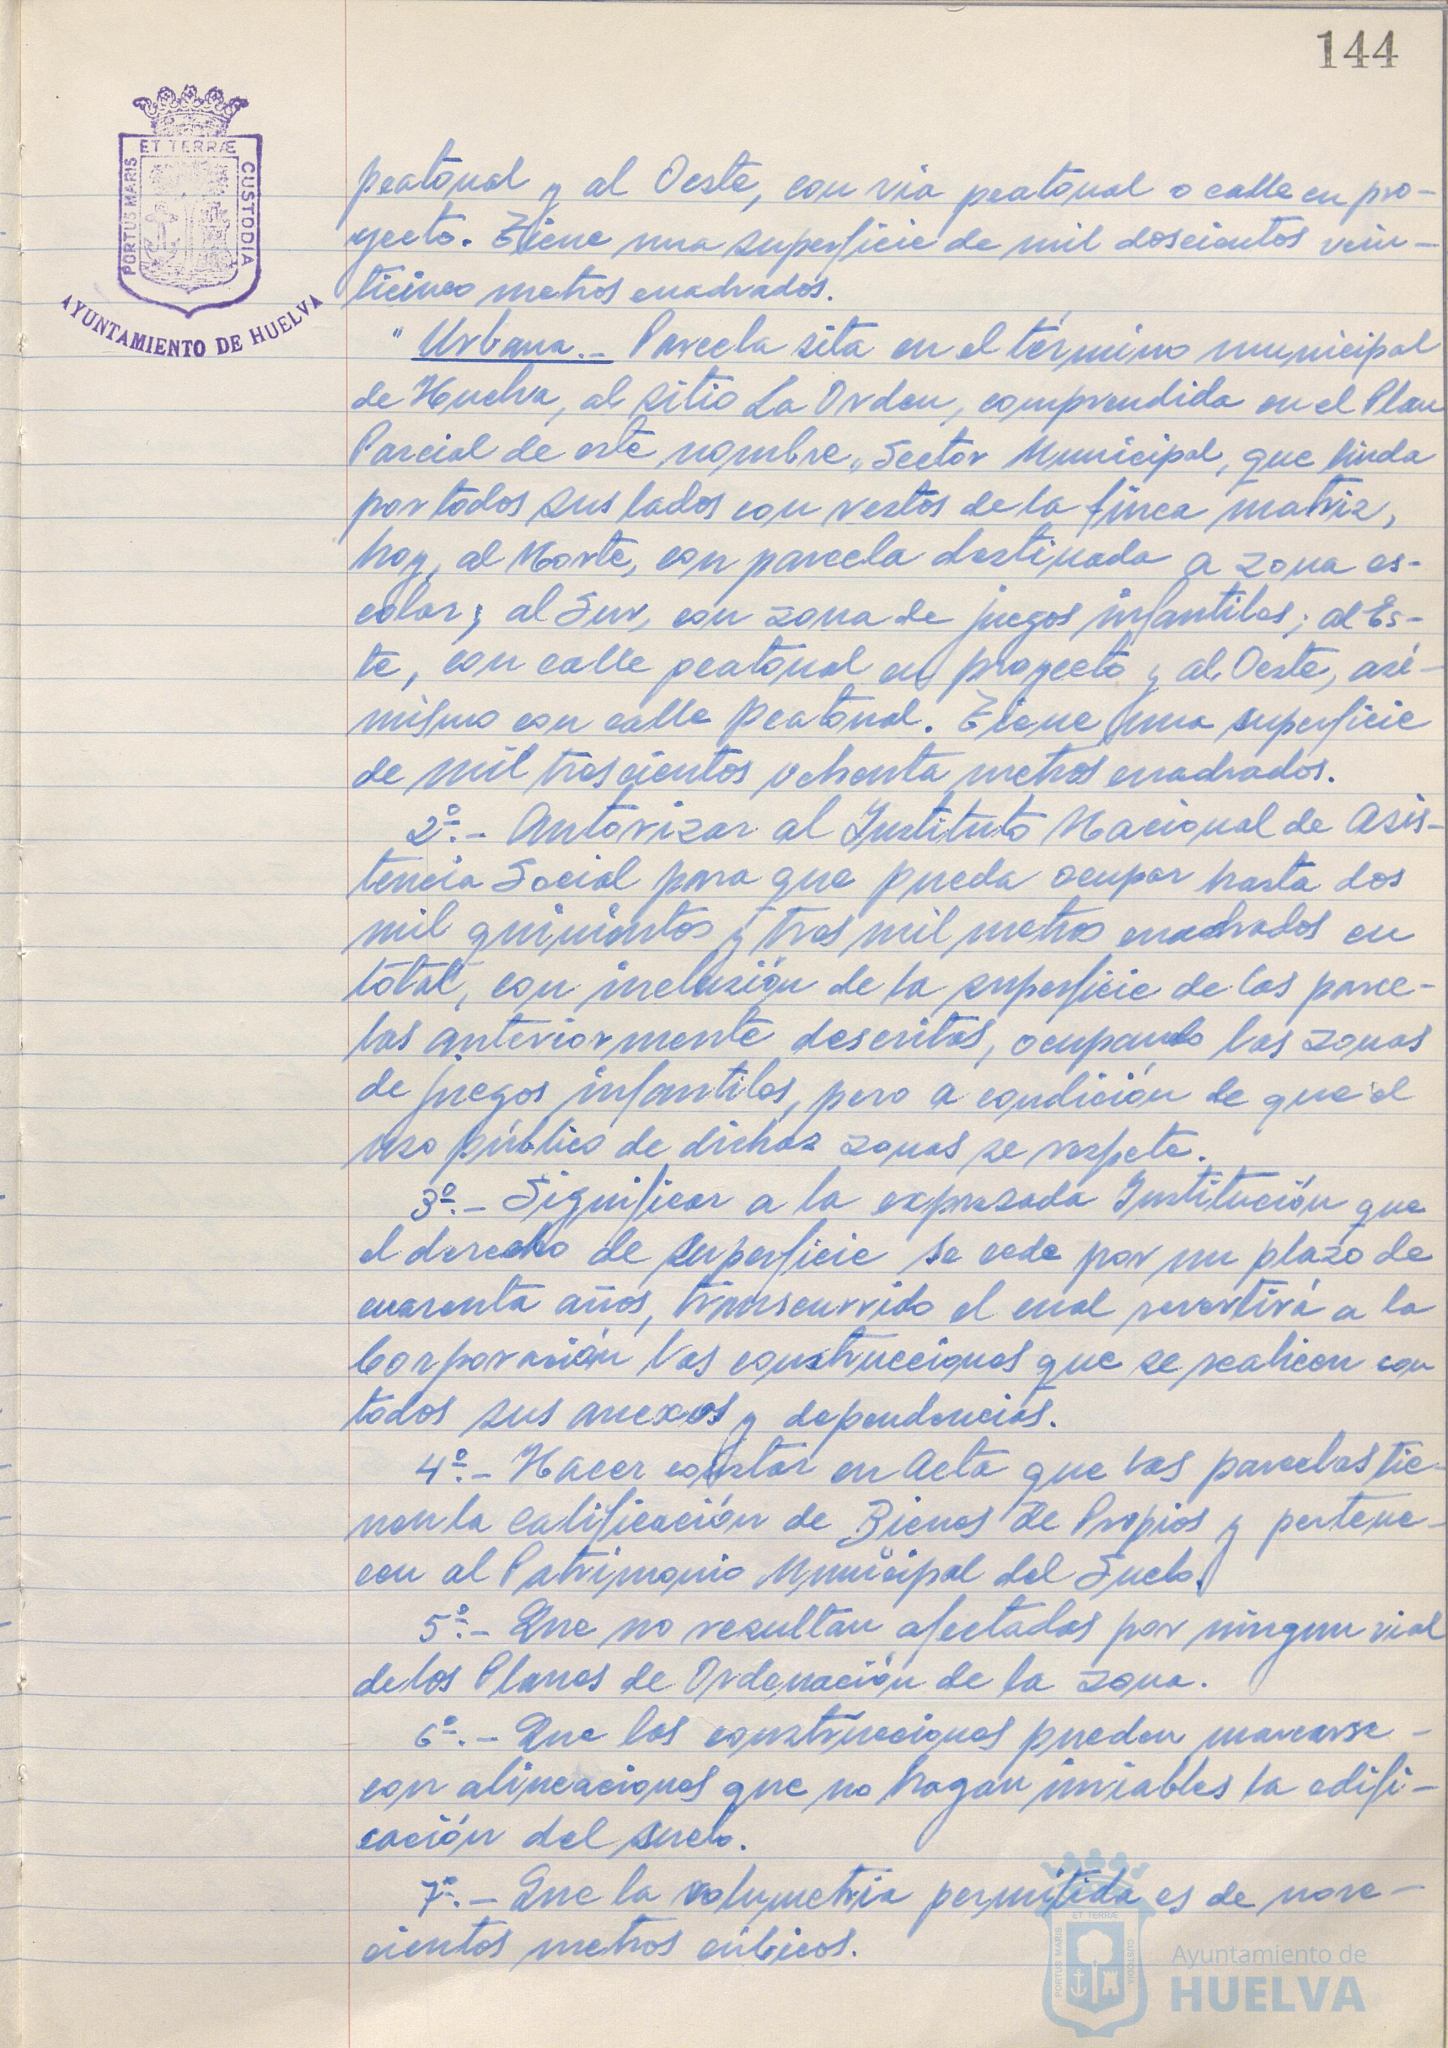 144
ET TERRÆ
PORTUS MARIS
CUSTODIA
AYUNTAMIENTO DE HUELVA
peatonal y al Oeste, con via peatonal o calle en pro-
yecto. Tiene una superficie de mil doscientos vein-
ticinco metros cuadrados.
" Urbana.- Parcela sita en el término municipal
de Huelva, al sitio La Orden, comprendida en el Plan
Parcial de este nombre, Sector Municipal, que linda
por todos sus lados con restos de la finca matriz,
hoy, al Norte, con parcela destinada a zona es-
colar; al Sur, con zona de juegos infantiles; al Es-
te, con calle peatonal en proyecto y al Oeste, asi-
mismo con calle peatonal. Tiene una superficie
de mil trescientos ochenta metros cuadrados.
2º.- Autorizar al Instituto Nacional de Asis-
tencia Social para que pueda ocupar hasta dos
mil quinientos y tres mil metros cuadrados en
total, con inclusión de la superficie de las parce-
las anteriormente descritas, ocupando las zonas
de juegos infantiles, pero a condición de que el
uso público de dichas zonas se respete.
3º.- Significar a la expresada Institución que
el derecho de superficie se cede por un plazo de
cuarenta años, transcurrido el cual revertirá a la
Corporación las construcciones que se realicen con
todos sus anexos y dependencias.
4º.- Hacer constar en Acta que las parcelas tie-
nen la calificación de Bienes de Propios y pertene-
cen al Patrimonio Municipal del Suelo.
5º.- Que no resultan afectadas por ningun vial
de los Planes de Ordenación de la zona.
6º.- Que las construcciones pueden marcarse-
con alineaciones que no hagan inviables la edifi-
cación del suelo.
7º.- Que la volumetria permitida es de nove-
cientos metros cúbicos.
ET TERRÆ
PORTUS MARIS
CUSTODIA
Ayuntamiento de
HUELVA